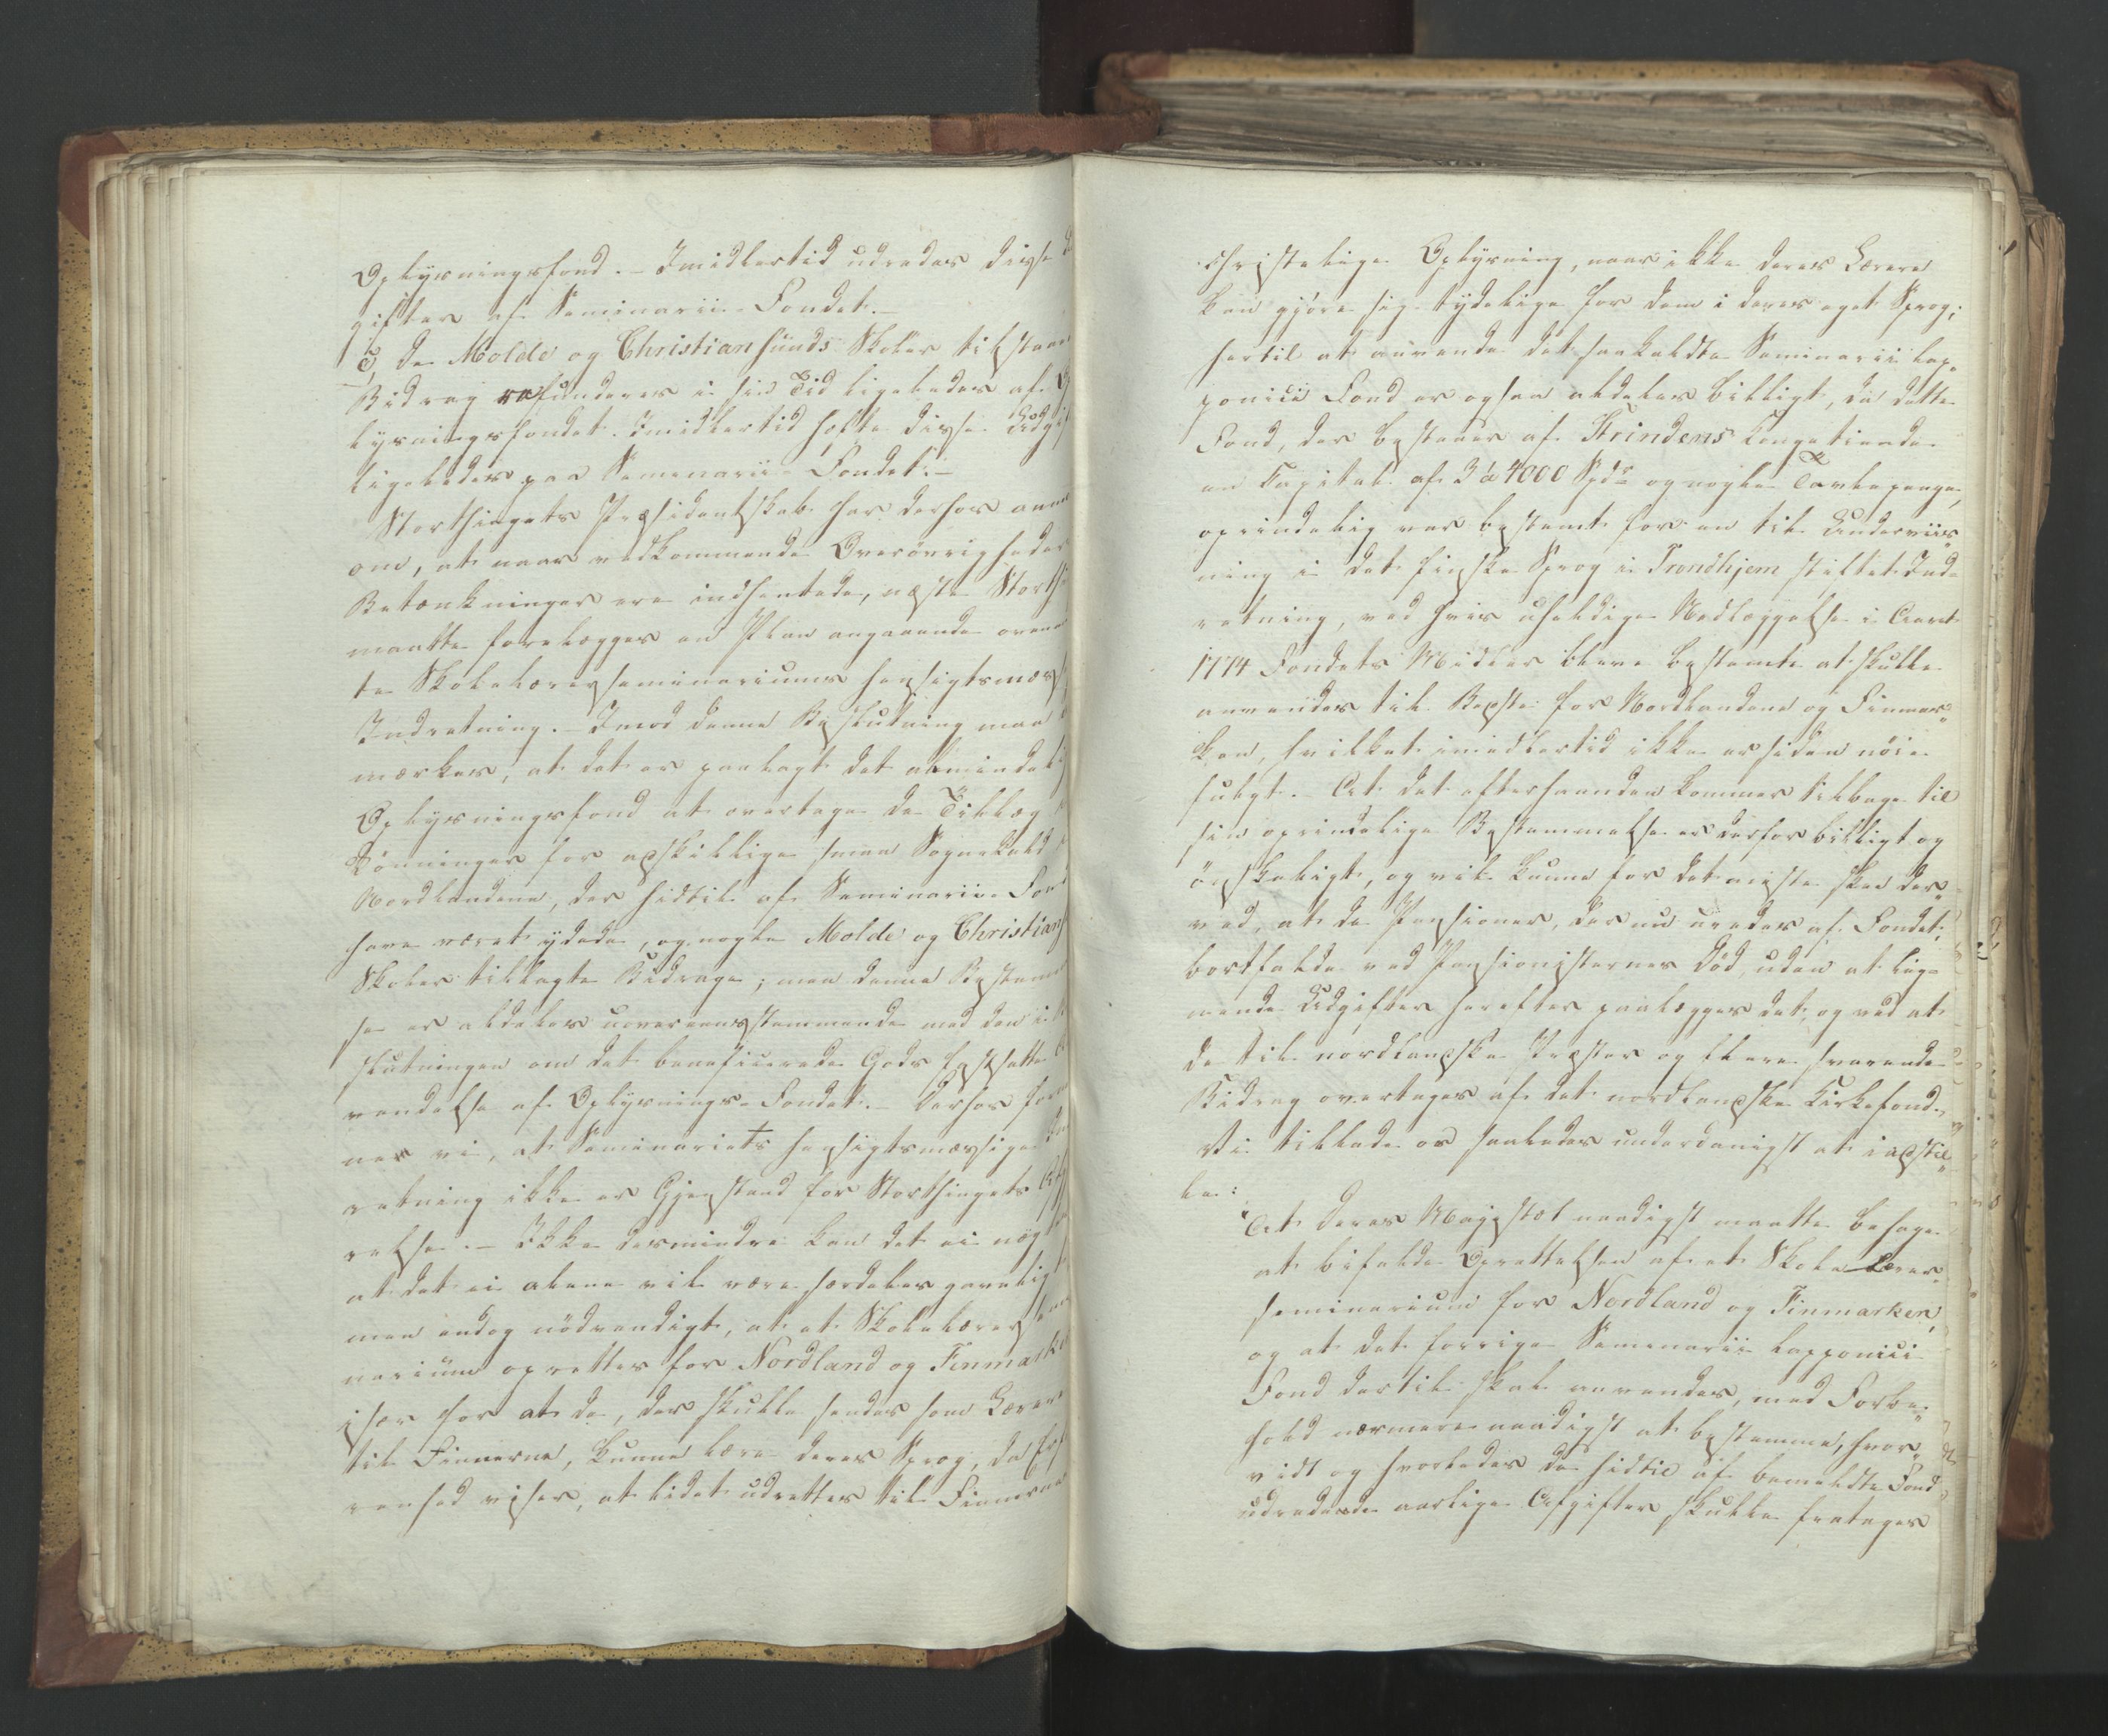 Oplysningsfond. – Imidlertid udredes disse
gifter af Seminarii-Fondet. –
5, De Molde og Christiansunds Skoler tilstaaede
Bidrag refunderes i sin Tid ligeledes af
lysningsfondet. Imidlertid hefte disse Udgif
ligeledes paa Semenarii-Fondet. –
Storthingets Præsidentskab har derhos
om, at naar vedkommende Overøvrigheders
Betænkninger ere indhentede, næste Storth
maatte forelægges en Plan angaaende
te Skolelærerseminariums hensigtsmæss
Indretning. – Imod denne Beslutning maa
mærkes, at det er paalagt det almindelig
Oplysningsfond at overtage de Tillæg
Lønninger for adskillige smaa Sognekald
Nordlandene, der hidtil af Seminarii-Fond
have været ydede, og nogle Molde og Christians
Skoler tillagte Bidrage; men denne Bestemm
se er aldeles uovereensstemmende med den i
slutningen om det beneficerede Gods fastsatte
vendelse af Oplysnings-Fondet. – Derhos for
ner vi, at Seminariets hensigtsmæssige
retning ikke er Gjenstand for Storthingets
relse. – Ikke desmindre kan det ei næg
at det ei alene vil være særdeles gavnligt
men endog nødvendigt, at et Skolelærers
narium oprettes for Nordland og Finmarken
især for at de, der skulle sendes som Lærere
til Finnerne, kunne lære deres Sprog, da
renhed viser, at lidet udrettes til Finnernes
christelige Oplysning, naar ikke deres Lærere
kan gjøre sig tydelige for dem i deres eget Sprog;
hertil at anvende det saakaldte Seminarii lap„
ponici Fond er ogsaa aldeles billigt, da dette
Fond, der bestaaer af Strindens Kongetiende
en Capital af 3 à 4000 Spdr og nogle Tavlepenge,
oprindelig var bestemt for en til Underviis„
ning i det finske Sprog i Trondhjem stiftet Ind-
retning, ved hvis uheldige Nedlæggelse i Aaret
1774 Fondets Midler bleve bestemte at skulle
anvendes til Bedste for Nordlandene og Finmar„
ken, hvilket imidlertid ikke er siden nøie
fulgt. – At det efterhaanden kommer tilbage til
sin oprindelige Bestemmelse er derfor billigt og
ønskeligt, og vil kunne for det meste skee der„
ved, at de Pensioner, der nu udredes af Fondet,
bortfalde ved Pensionisternes Død, uden at lig-
nende Udgifter herefter paalægges det, og ved at
de til nordlandske Præster og flere svarende
Bidrag overtages af det nordlandske Kirkefond.
Vi tillade os saaledes underdanigst at indstil„
le:
At Deres Majestæt naadigst maatte behage
at bifalde Oprettelsen af et Skole Lærer„
seminarium for Nordland og Finmarken,
og at det forrige Semenarii lapponici
Fond dertil skal anvendes, med Forbe„
hold nærmere naadigst at bestemme, hvor„
vidt og hvorledes de hidtil af bemeldte Fond
udredede aarlige Afgifter skulle fratages